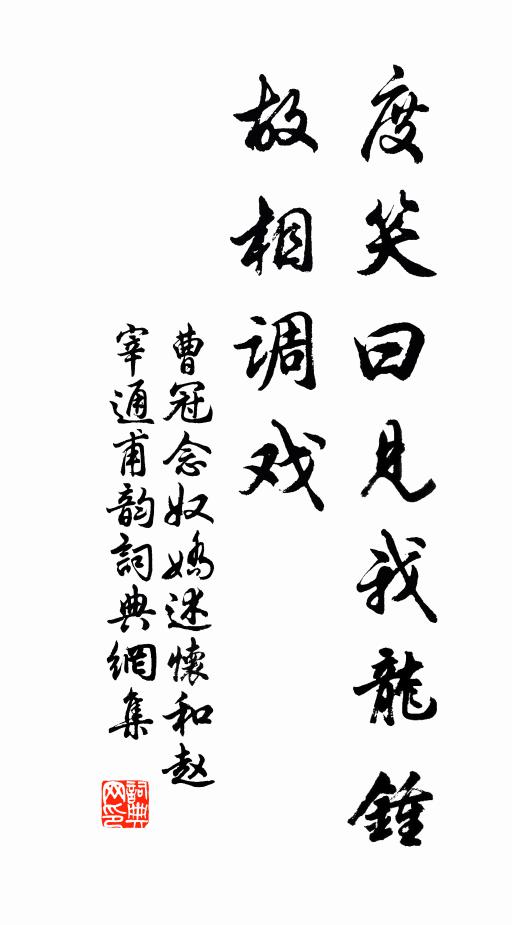 度笑曰见我龍鍾
故相调戏
曹冠念奴嬌述懷和赵
宰通甫韵詞典網集
詞典网印